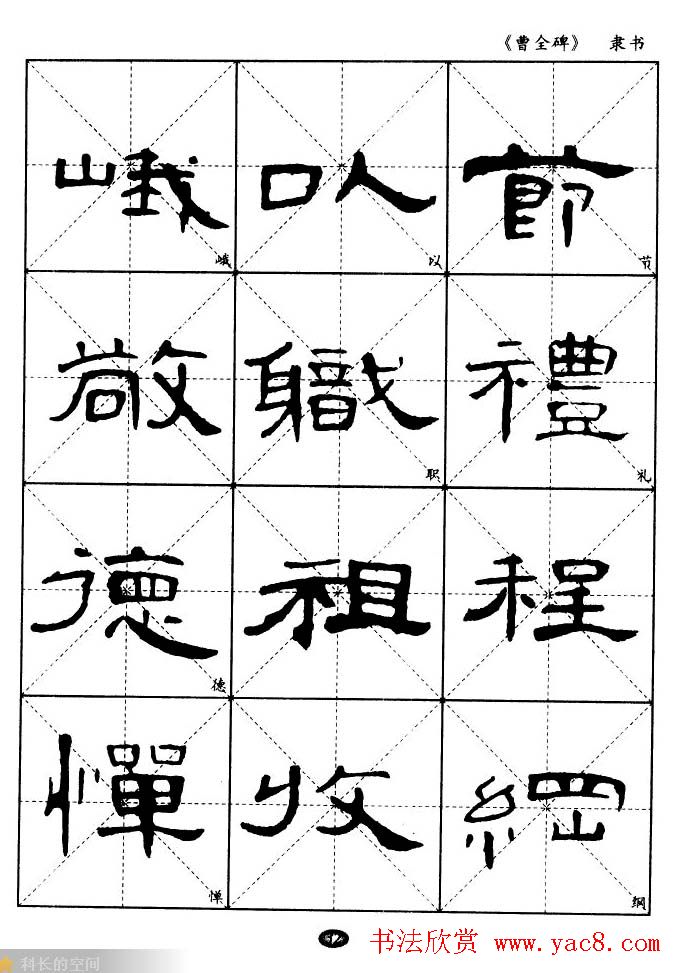 《曹全碑》 隶书
峨 以 節
峨 以 节
敞 職 禮
职 礼
德 祖 程
德
憚 收 綱
惮 纲
书法欣赏 www.yac8.com
科长的空间